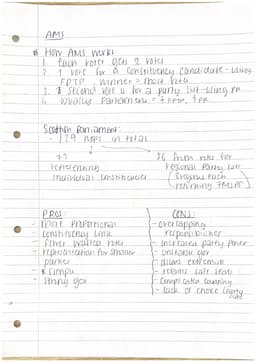 AMS
* How AMS works:
1 Each voter gets 2 votes
2 1 vote for a constituency candidate - using
FPTP, winner = most votes
3. Second vote is for a party list - using PR
4 usually parliament =
Scottish Parliament:
- 129 MSPs in total
73
representing
individual constituencies
56 from
regional party list
8 regions each
returning 7 MSPs
PROS:
- More proportional
- Constituency link
- Fewer wasted votes
- representation for smaller
parties
- Simple
- strong gov
CONS:
- overlapping
responsibilities
- increased party power
- unstable gov
- allows extremists
- retains safe seats
- complicated counting
- lack of choice